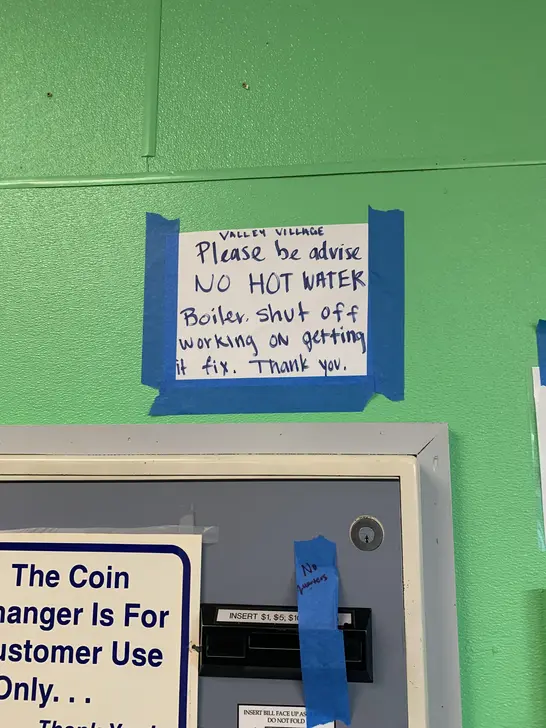 VALLEY VILLAGE
Please be advise
NO HOT WATER
Boiler. shut off
working on getting
it fix. Thank you.
No
INSERT $1, $5, $1
The Coin
hanger Is For
ustomer Use
Only. . .
Thank You!
INSERT BILL FACE UP AS
DO NOT FOLD